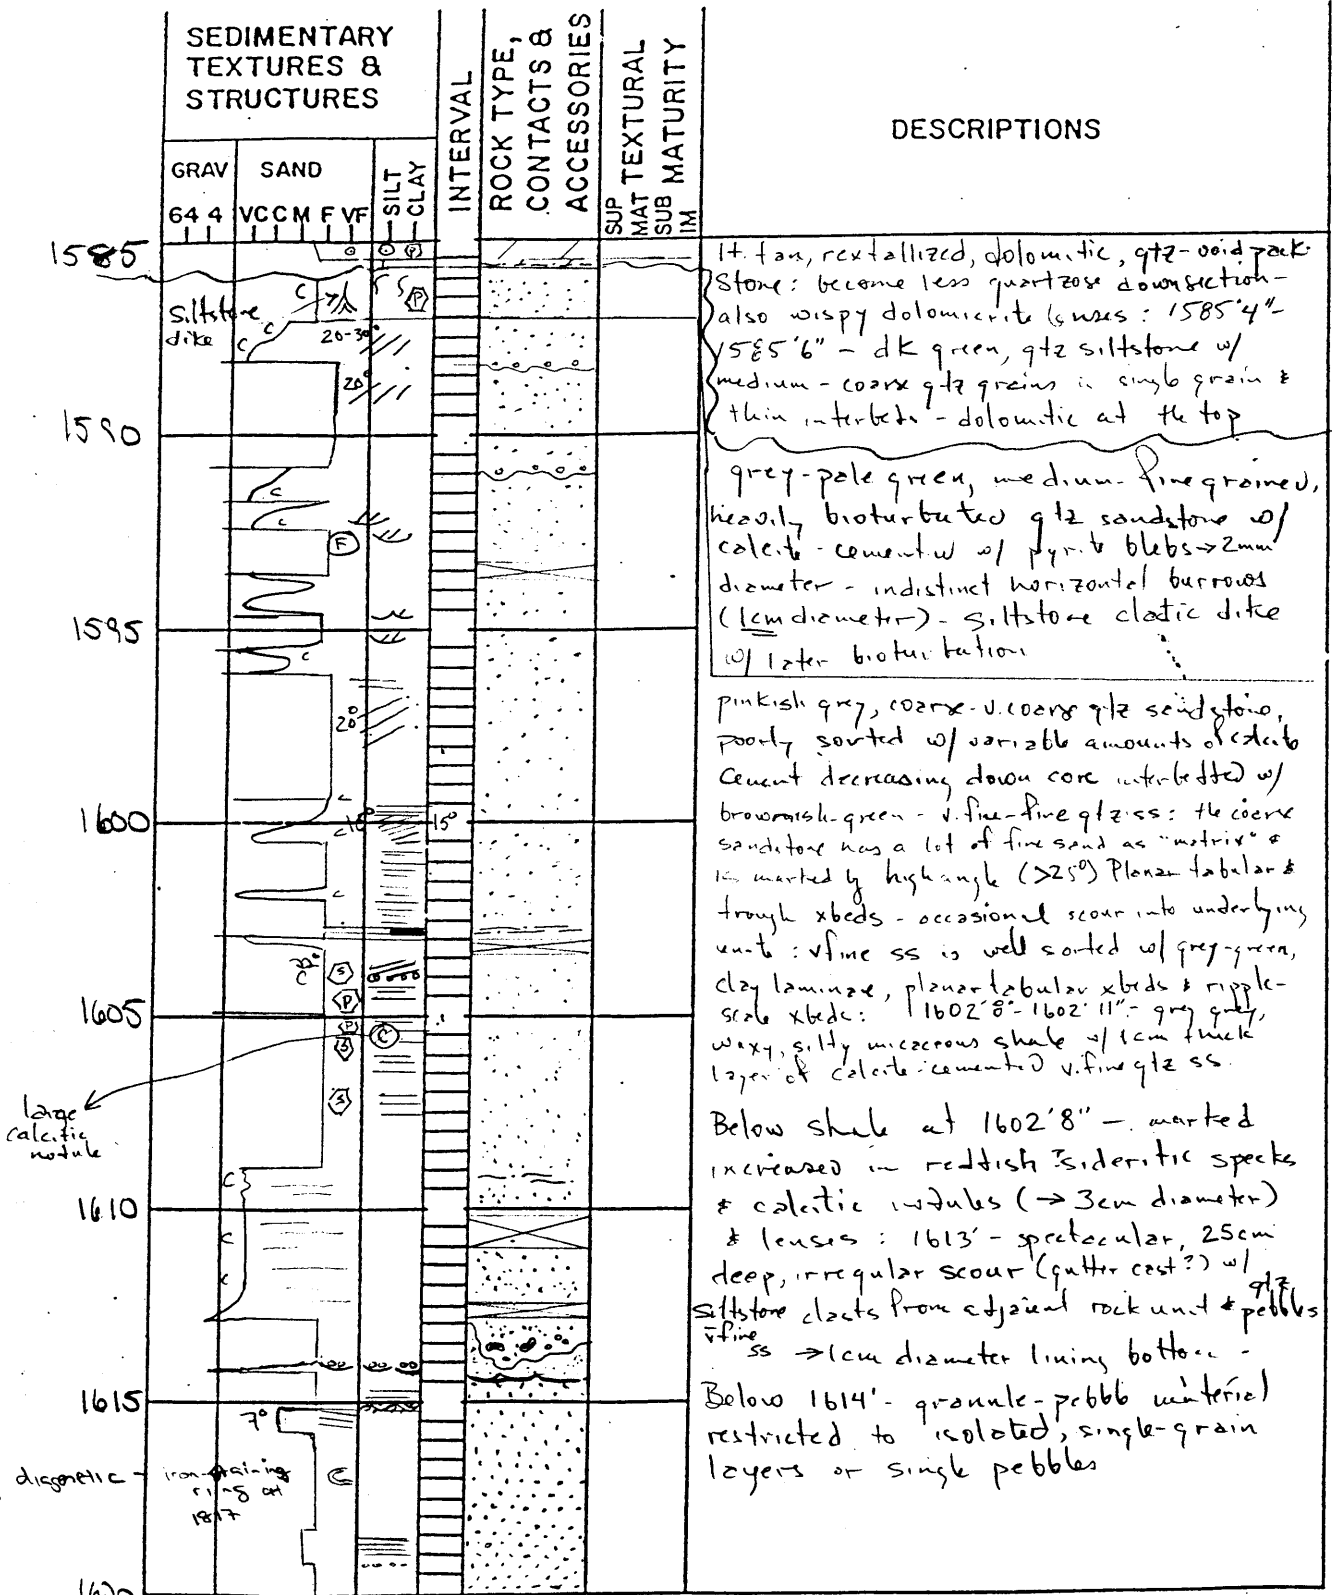 SEDIMENTARY
TEXTURES &
STRUCTURES
INTERVAL
ROCK TYPE,
CONTACTS &
ACCESSORIES
TEXTURAL
MATURITY
SUP
MAT
SUB
IM
DESCRIPTIONS
GRAV SAND SILT CLAY
64 4 VC C M F VF
1585
Siltstone
dike
C
C
C
P
P
20-30°
20°
1590
C
C
F
1595
C
20°
1600
C
15°
C
C
S
P
1605
P
S
C
S
large
calcitic
nodule
C
1610
C
C
1615
7°
diagenetic - iron-staining
ring at
1617
C
lt. tan, rextallized, dolomitic, qtz-ooid pack-
stone: become less quartzose downsection-
also wispy dolomicrite lenses: 1585'4"-
1585'6" - dk green, qtz siltstone w/
medium-coarse qtz grains in single grain &
thin interbeds - dolomitic at the top
grey-pale green, medium-fine grained,
heavily bioturbated qtz sandstone w/
calcite-cement w/ pyrite blebs → 2mm
diameter - indistinct horizontal burrows
(1cm diameter) - siltstone clatic dike
w/ later bioturbation
pinkish grey, coarse-v.coarse qtz sandstone,
poorly sorted w/ variable amounts of calcite
cement decreasing down core interbedded w/
brownish-green - v.fine-fine qtz ss: the coarse
sandstone has a lot of fine sand as "matrix" &
is marked by high angle (>25°) Planar tabular &
trough xbeds - occasional scour into underlying
units: vfine ss is well sorted w/ grey-green,
clay laminae, planar tabular xbeds & ripple-
scale xbeds: 1602'8"-1602'11" - grey,
waxy, silty micaceous shale w/ 1cm thick
layer of calcite-cemented v.fine qtz ss.
Below shale at 1602'8" - marked
increased in reddish ?sideritic specks
& calcitic nodules (→ 3cm diameter)
& lenses: 1613' - spectacular, 25cm
deep, irregular scour (gutter cast?) w/
siltstone clasts from adjacent rock unit & qtz pebbles
vfine ss → 1cm diameter lining bottom -
Below 1614' - granule-pebble material
restricted to isolated, single-grain
layers or single pebbles